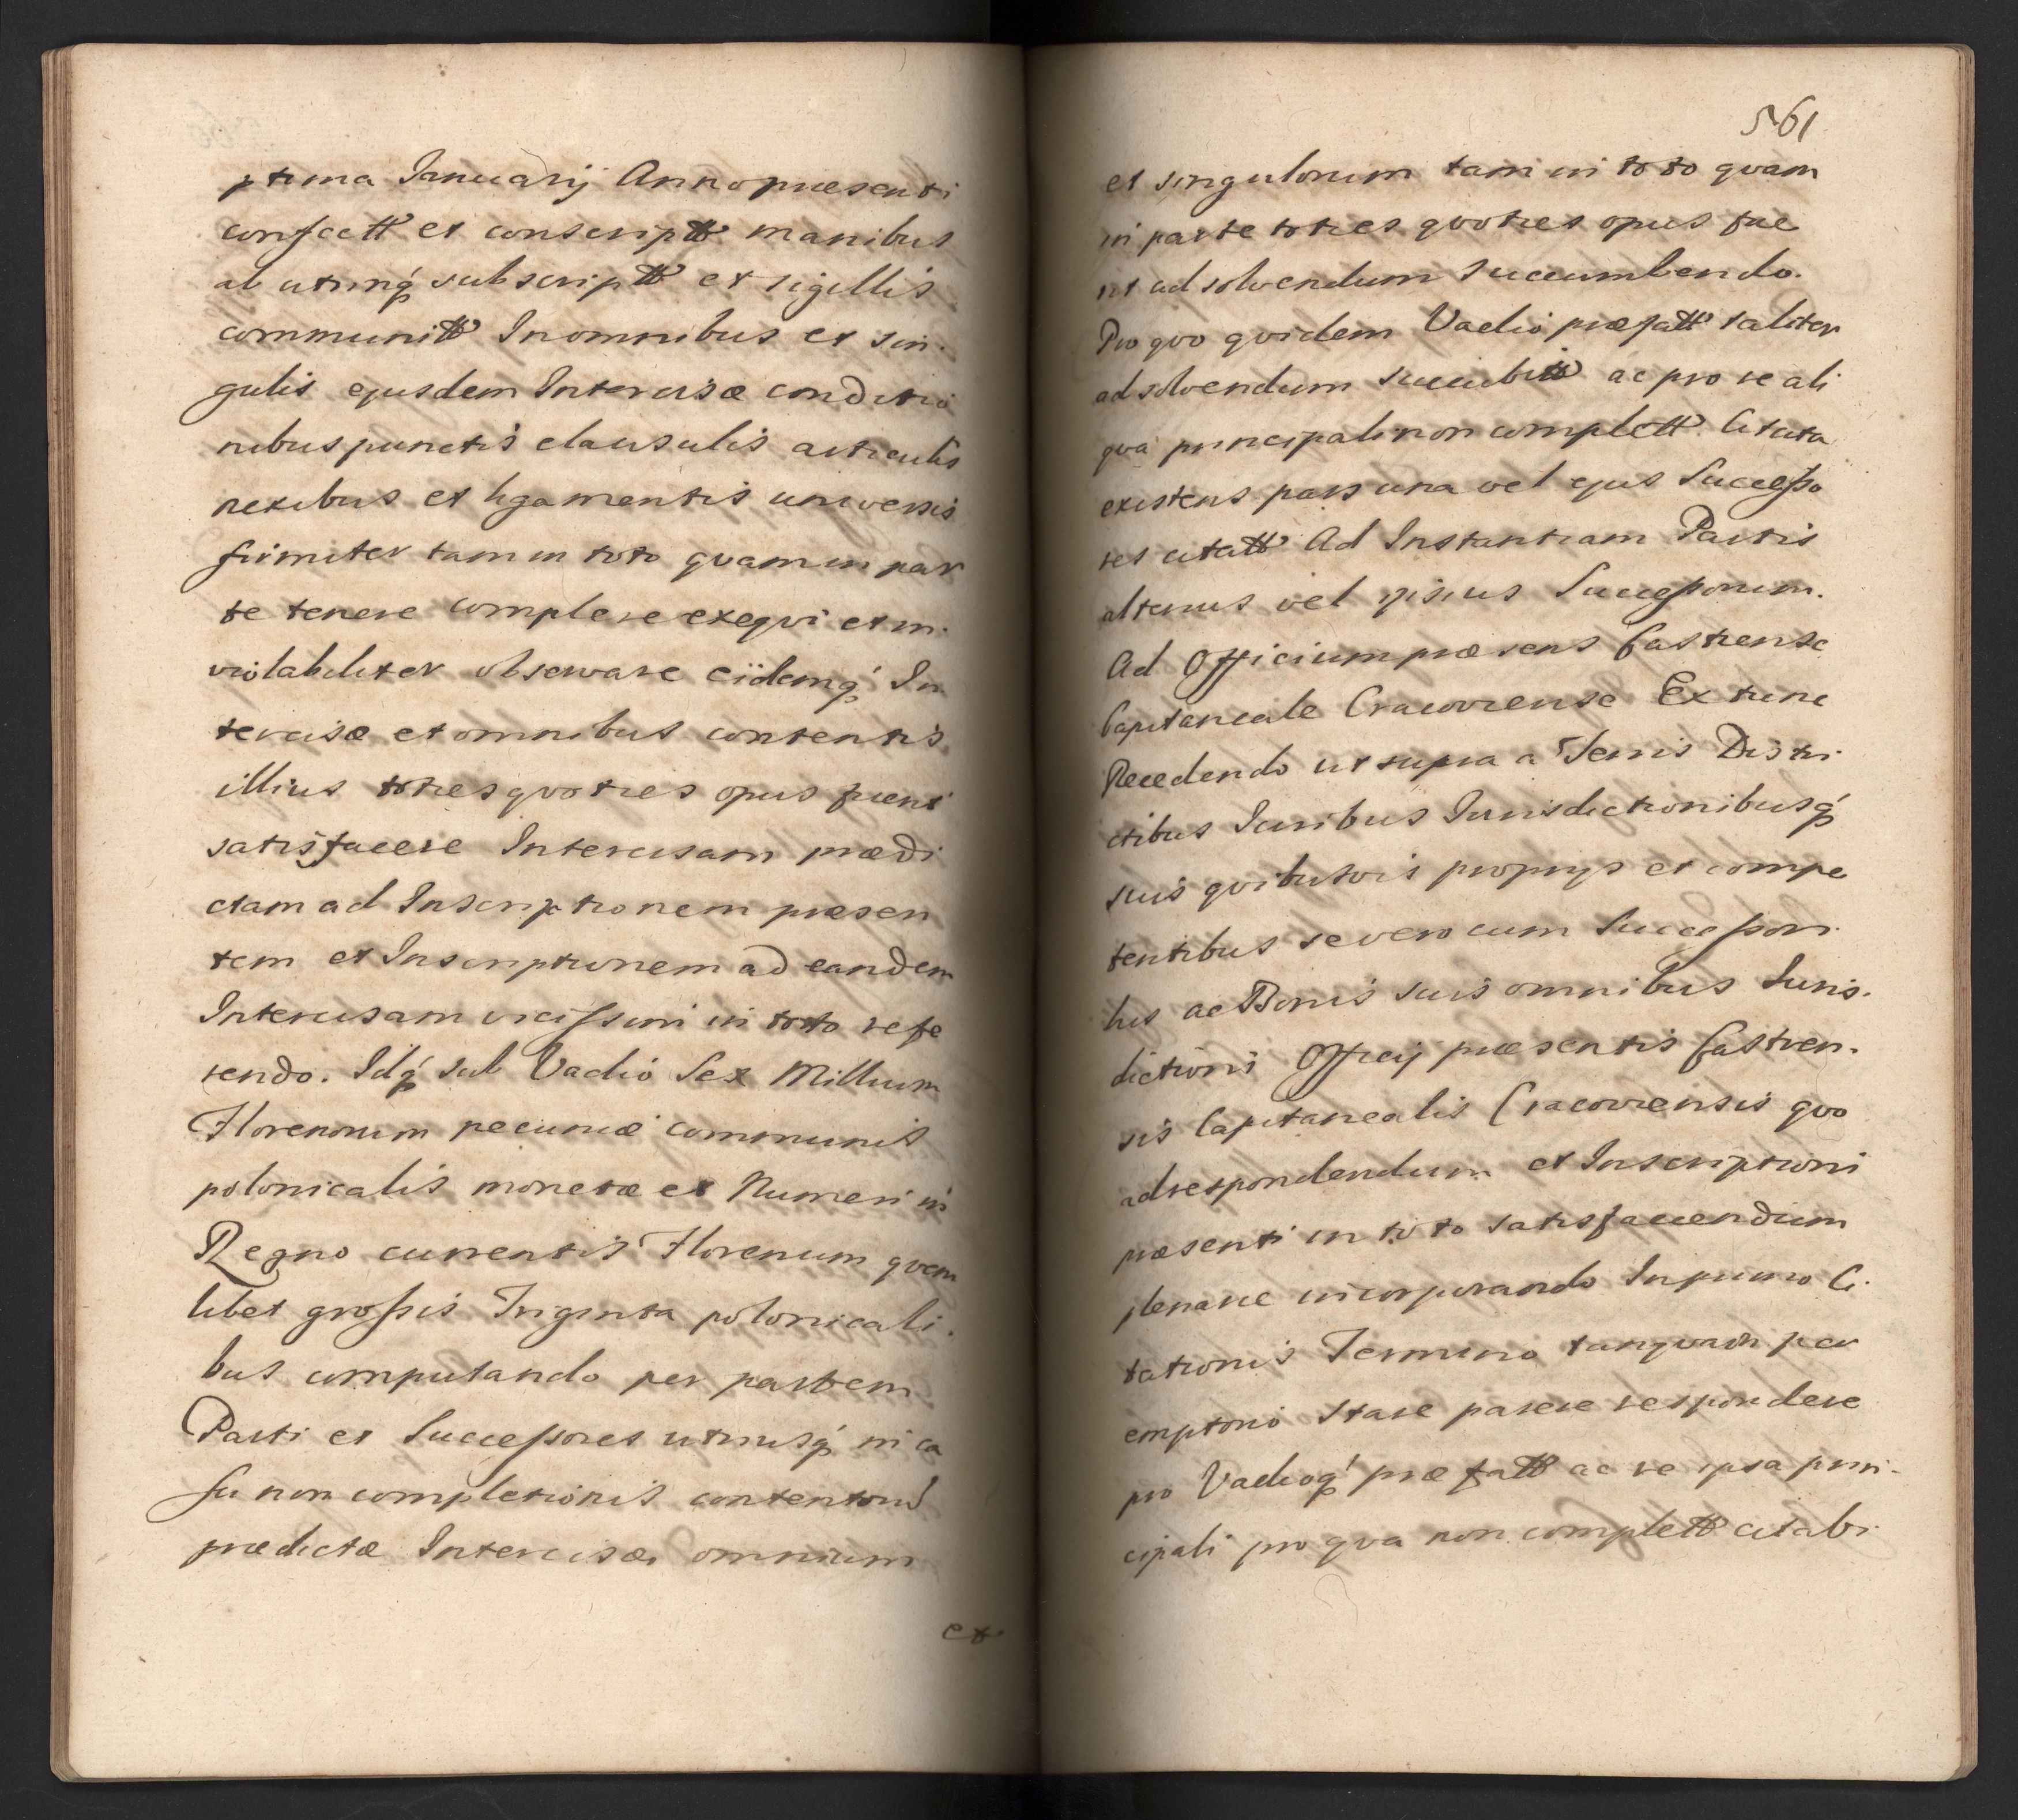 ptima Januarij Anno præsenti
confectt et conscriptt manibus
ab utrinq subscriptt et sigillis
communitt In omnibus et sin-
gulis ejusdem Intercisæ conditio
nibus punctis clausulis articulis
nexibus et ligamentis universis
firmiter tam in toto qvam in par
te tenere complere exeqvi et in-
violabiliter observare eidemq In
tercisæ et omnibus contentis
illius toties qvoties opus fuerit
satisfacere Intercisam prædi
ctam ad Inscriptionem præsen
tem et Inscriptionem ad eandem
Intercisam vicissim in toto refe
rendo. Idq sub Vadio Sex Millium
Florenorum pecuniæ communis
polonicalis monetæ et Numeri in
Regno currentis Florenum qvem
libet grossis Triginta polonicali-
bus computando per partem
Parti et Successores utriusq in ca
su non completionis contentorum
prædictæ Intercisæ omnium
et
561
et singulorum tam in toto qvam
in parte toties qvoties opus fue
rit ad solvendum succumbendo.
Pro qvo qvidem Vadio præfatt taliter
ad solvendum succubitt ac pro re ali
qva principali non complett. Citata
existens pars una vel ejus Successo
res citatt Ad Instantiam Partis
alterius vel ipsius Successorum.
Ad Officium præsens Castrense
Capitaneale Cracoviense Ex tunc
Recedendo ut supra a Terris Distri
ctibus Juribus Jurisdictionibusq
suis qvibusvis proprijs et compe
tentibus se vero cum Successori
bus ac Bonis suis omnibus Juris-
dictioni Officij præsentis Castren-
sis Capitanealis Cracoviensis qvo
ad respondendum et Inscriptioni
præsenti in toto satisfaciendum
plenarie incorporando In primo Ci-
tationis Termino tanqvam per
emptorio stare parere respondere
pro Vadioq præfatt ac re ipsa prin-
cipali pro qva non complett citabi